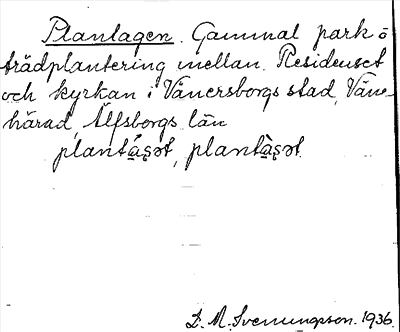 Plantagen. Gammal park o
trädplantering mellan Residenset
och kyrkan i Vänersborgs stad, Väne
härad, Älfsborgs län
plantáʂət, plantàʂət.
D. M. Svenungsson. 1936.